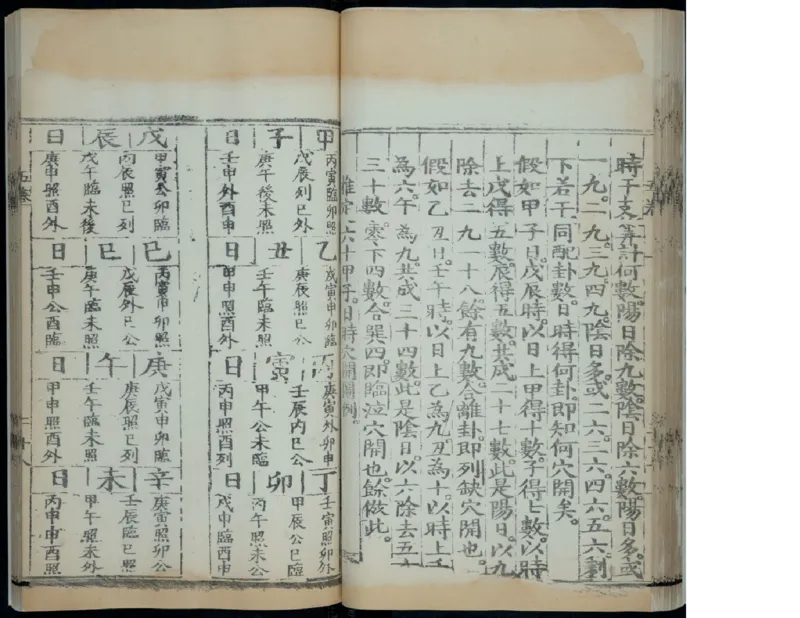 時干支算計何數。陽日除九數。陰日除六數。陽日多。或
一九。二九。三九。四九。陰日多。或二六。三六。四六。五六。剩
下若干。同配卦數。日時得何卦。即知何穴開矣。
假如甲子日。戊辰時。以日上甲得十數。子得七數。以時
上戊得五數。辰得五數。共成二十七數。此是陽日。以九
除去二九一十八。餘有九數。合離卦。即列缺穴開也。
假如乙丑日。壬午時。以日上乙為九。丑為十。以時上壬
為六。午為九。共成三十四數。此是陰日。以六除去五六
三十數。零下四數。合巽四即臨泣穴開也。餘倣此。
推定六十甲子。日時穴開圖例。
甲子日
丙寅臨卯照
戊辰列巳外
庚午後未照
壬申外酉申
乙丑日
戊寅申卯臨
庚辰照巳公
壬午臨未照
甲申照酉外
丙寅日
庚寅外卯申
壬辰內巳公
甲午公未臨
丙申照酉列
丁卯日
壬寅照卯外
甲辰公巳臨
丙午照未公
戊申臨酉申
戊辰日
甲寅公卯臨
丙辰照巳列
戊午臨未後
庚申照酉外
己巳日
丙寅申卯照
戊辰外巳公
庚午臨未照
壬申公酉臨
庚午日
戊寅申卯臨
庚辰照巳列
壬午臨未照
甲申照酉外
辛未日
庚寅照卯公
壬辰臨巳照
甲午照未外
丙申申酉照